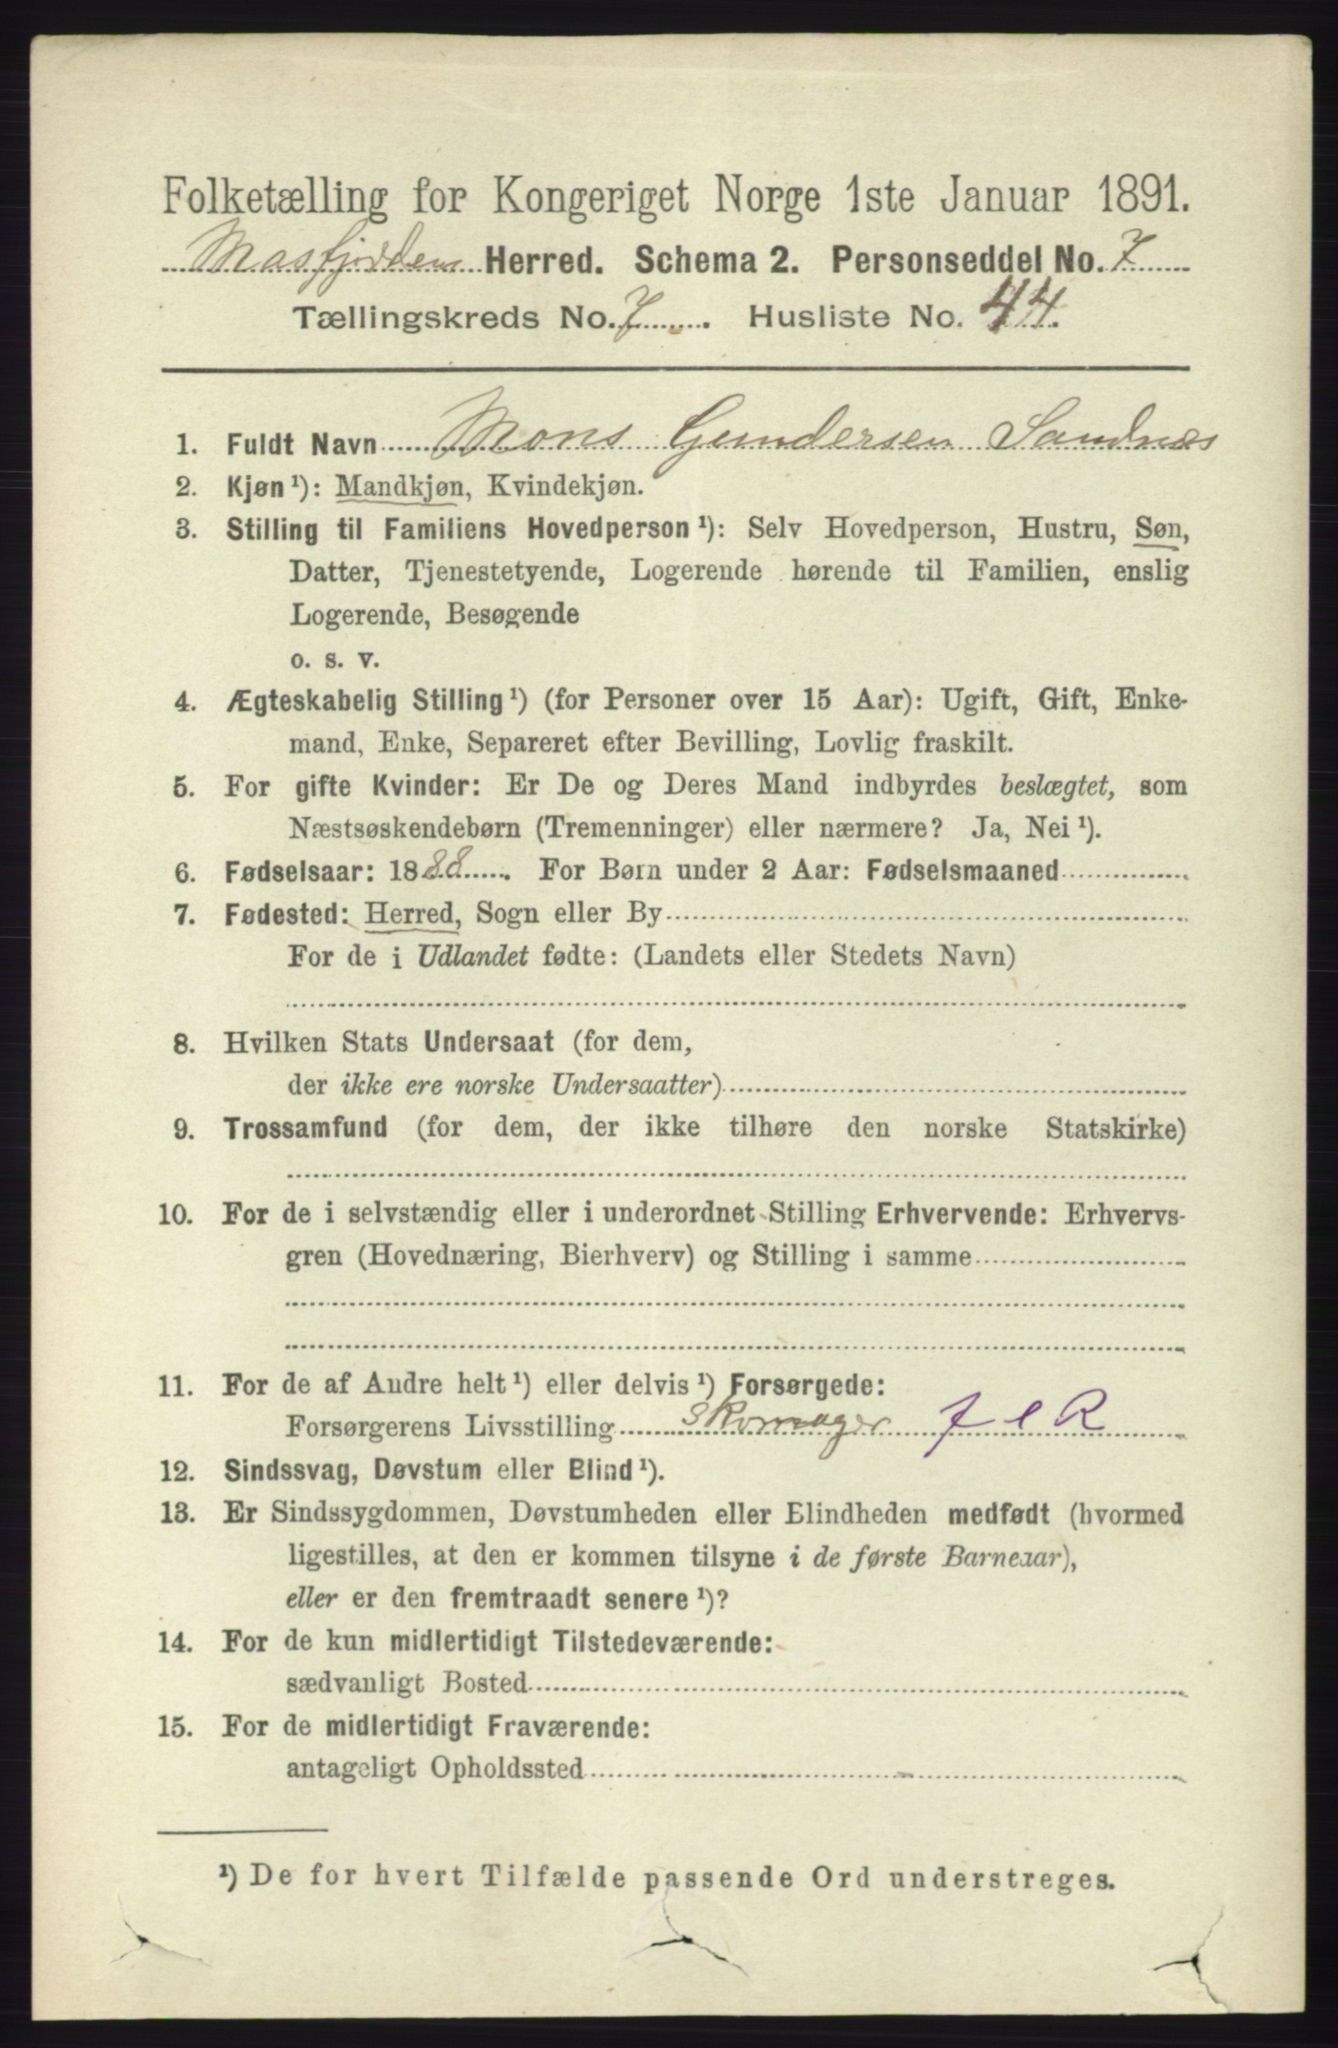 Folketælling for Kongeriget Norge 1ste Januar 1891.
Masfjorden Herred. Schema 2. Personseddel No. 7
Tællingskreds No. 7. Husliste No. 44.
1. Fuldt Navn Mons Gundersen Sandnæs
2. Kjøn¹): Mandkjøn, Kvindekjøn.
3. Stilling til Familiens Hovedperson¹): Selv Hovedperson, Hustru, Søn,
Datter, Tjenestetyende, Logerende hørende til Familien, enslig
Logerende, Besøgende
o. s. v.
4. Ægteskabelig Stilling¹) (for Personer over 15 Aar): Ugift, Gift, Enke-
mand, Enke, Separeret efter Bevilling, Lovlig fraskilt.
5. For gifte Kvinder: Er De og Deres Mand indbyrdes beslægtet, som
Næstsøskendebørn (Tremenninger) eller nærmere? Ja, Nei¹).
6. Fødselsaar: 1888. For Børn under 2 Aar: Fødselsmaaned
7. Fødested: Herred, Sogn eller By
For de i Udlandet fødte: (Landets eller Stedets Navn)
8. Hvilken Stats Undersaat (for dem,
der ikke ere norske Undersaatter)
9. Trossamfund (for dem, der ikke tilhøre den norske Statskirke)
10. For de i selvstændig eller i underordnet Stilling Erhvervende: Erhvervs-
gren (Hovednæring, Bierhverv) og Stilling i samme
11. For de af Andre helt¹) eller delvis¹) Forsørgede:
Forsørgerens Livsstilling Skomager f e R
12. Sindssvag, Døvstum eller Blind¹).
13. Er Sindssygdommen, Døvstumheden eller Blindheden medfødt (hvormed
ligestilles, at den er kommen tilsyne i de første Barneaar),
eller er den fremtraadt senere¹)?
14. For de kun midlertidigt Tilstedeværende:
sædvanligt Bosted
15. For de midlertidigt Fraværende:
antageligt Opholdssted
¹) De for hvert Tilfælde passende Ord understreges.